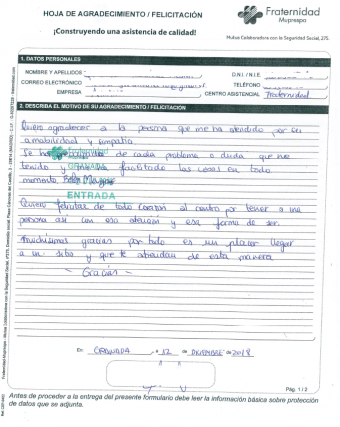 HOJA DE AGRADECIMIENTO / FELICITACIÓN
Fraternidad
Muprespa
¡Construyendo una asistencia de calidad!
Mutua Colaboradora con la Seguridad Social, 275.
1. DATOS PERSONALES
NOMBRE Y APELLIDOS
D.N.I. / N.I.E.
CORREO ELECTRÓNICO
TELÉFONO
EMPRESA
CENTRO ASISTENCIAL Fraternidad
2. DESCRIBA EL MOTIVO DE SU AGRADECIMIENTO / FELICITACIÓN
Quiero agradecer a la persona que me ha atendido por su
amabilidad y simpatía.
Se ha de cada problema o duda que me
tenido y facilitado las cosas en todo
momento.
ENTRADA
Quiero felicitar de todo corazón al centro por tener a una
persona así con esa atención y esa forma de ser.
Muchísimas gracias por todo es un placer llegar
a un sitio y que te atiendan de esta manera
- Gracias -
En GRANADA, a 12 de DICIEMBRE de 2018
Pág. 1 / 2
Antes de proceder a la entrega del presente formulario debe leer la información básica sobre protección
de datos que se adjunta.